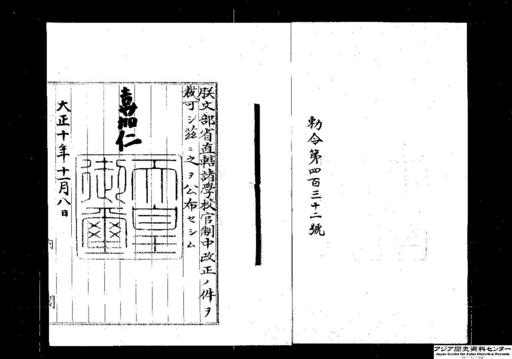 勅令第四百三十二號
朕文部省直轄諸學校官制中改正ノ件ヲ
裁可シ茲ニ之ヲ公布セシム
嘉仁
天皇
御璽
大正十年十一月八日
内閣
アジア歴史資料センター
Japan Center for Asian Historical Records